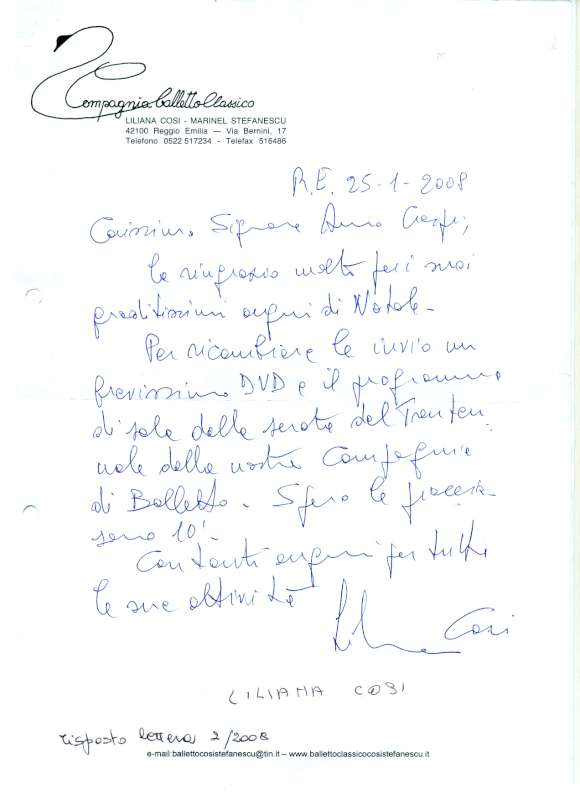 Compagnia Balletto Classico
LILIANA COSI - MARINEL STEFANESCU
42100 Reggio Emilia — Via Bernini, 17
Telefono 0522 517234 - Telefax 516486
R.E. 25-1-2008
Carissimo Signore
La ringrazio molto per i suoi
graditissimi auguri di Natale-
Per ricambiare le invio un
brevissimo DVD e il programma
di sala della serata del Trenten
nale della nostra Compagnia
di Balletto. Spero le piaccia-
sono 10'-
Con tanti auguri per tutte
le sue attività
Liliana Cosi
LILIANA COSI
risposto lettera 2/2008
e-mail:ballettocosistefanescu@tin.it – www.ballettoclassicocosistefanescu.it